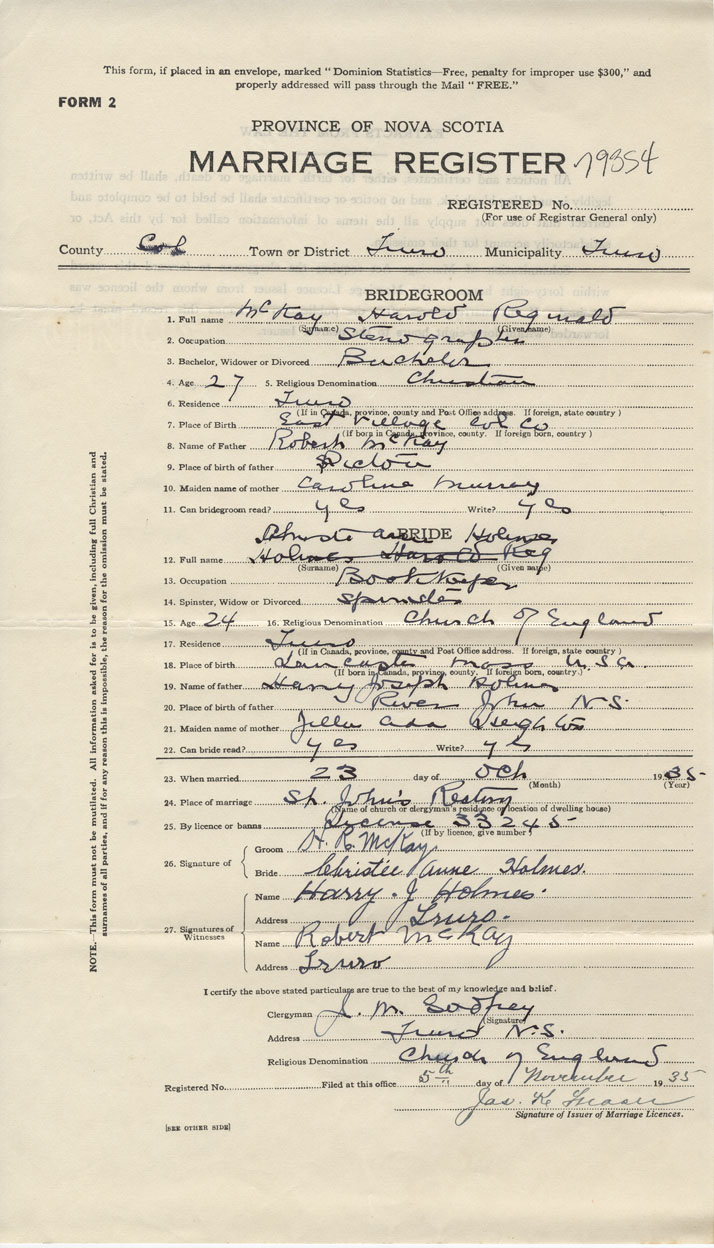 This form, if placed in an envelope, marked "Dominion Statistics—Free, penalty for improper use $300," and
properly addressed will pass through the Mail "FREE."
FORM 2
PROVINCE OF NOVA SCOTIA
MARRIAGE REGISTER 79354
REGISTERED No.
(For use of Registrar General only)
County Col Town or District Truro Municipality Truro
BRIDEGROOM
1. Full name McKay Harold Reginald
(Surname) (Given name)
2. Occupation Stenographer
3. Bachelor, Widower or Divorced Bachelor
4. Age 27 5. Religious Denomination Christian
6. Residence Truro
(If in Canada, province, county and Post Office address. If foreign, state country)
7. Place of Birth East Village Col Co
(If born in Canada, province, county. If foreign born, country)
8. Name of Father Robert McKay
9. Place of birth of father Pictou
10. Maiden name of mother Caroline Murray
11. Can bridegroom read? yes Write? yes
BRIDE
Christie Anne Holmes
12. Full name Holmes Harold Reg
(Surname) (Given name)
13. Occupation Bookkeeper
14. Spinster, Widow or Divorced Spinster
15. Age 24 16. Religious Denomination Church of England
17. Residence Truro
(If in Canada, province, county and Post Office address. If foreign, state country)
18. Place of birth Lancaster Mass U.S.A.
(If born in Canada, province, county. If foreign born, country.)
19. Name of father Harry Joseph Holmes
20. Place of birth of father River John N-S-
21. Maiden name of mother Ada
22. Can bride read? yes Write? yes
23. When married 23 day of Oct 1935-
(Month) (Year)
24. Place of marriage St. John's Rectory
(Name of church or clergyman's residence or location of dwelling house)
25. By licence or banns License 33245-
(If by licence, give number)
26. Signature of Groom H. R. McKay
Bride Christie Anne Holmes.
27. Signatures of Witnesses Name Harry. J Holmes.
Address Truro.
Name Robert McKay
Address Truro
I certify the above stated particulars are true to the best of my knowledge and belief.
Clergyman J. M. Godfrey
(Signature)
Address Truro N.S.
Religious Denomination Church of England
Registered No. Filed at this office 5th day of November 1935
Jas. K. Fraser
Signature of Issuer of Marriage Licences.
[SEE OTHER SIDE]
NOTE.—This form must not be mutilated. All information asked for is to be given, including full Christian and
surnames of all parties, and if for any reason this is impossible, the reason for the omission must be stated.